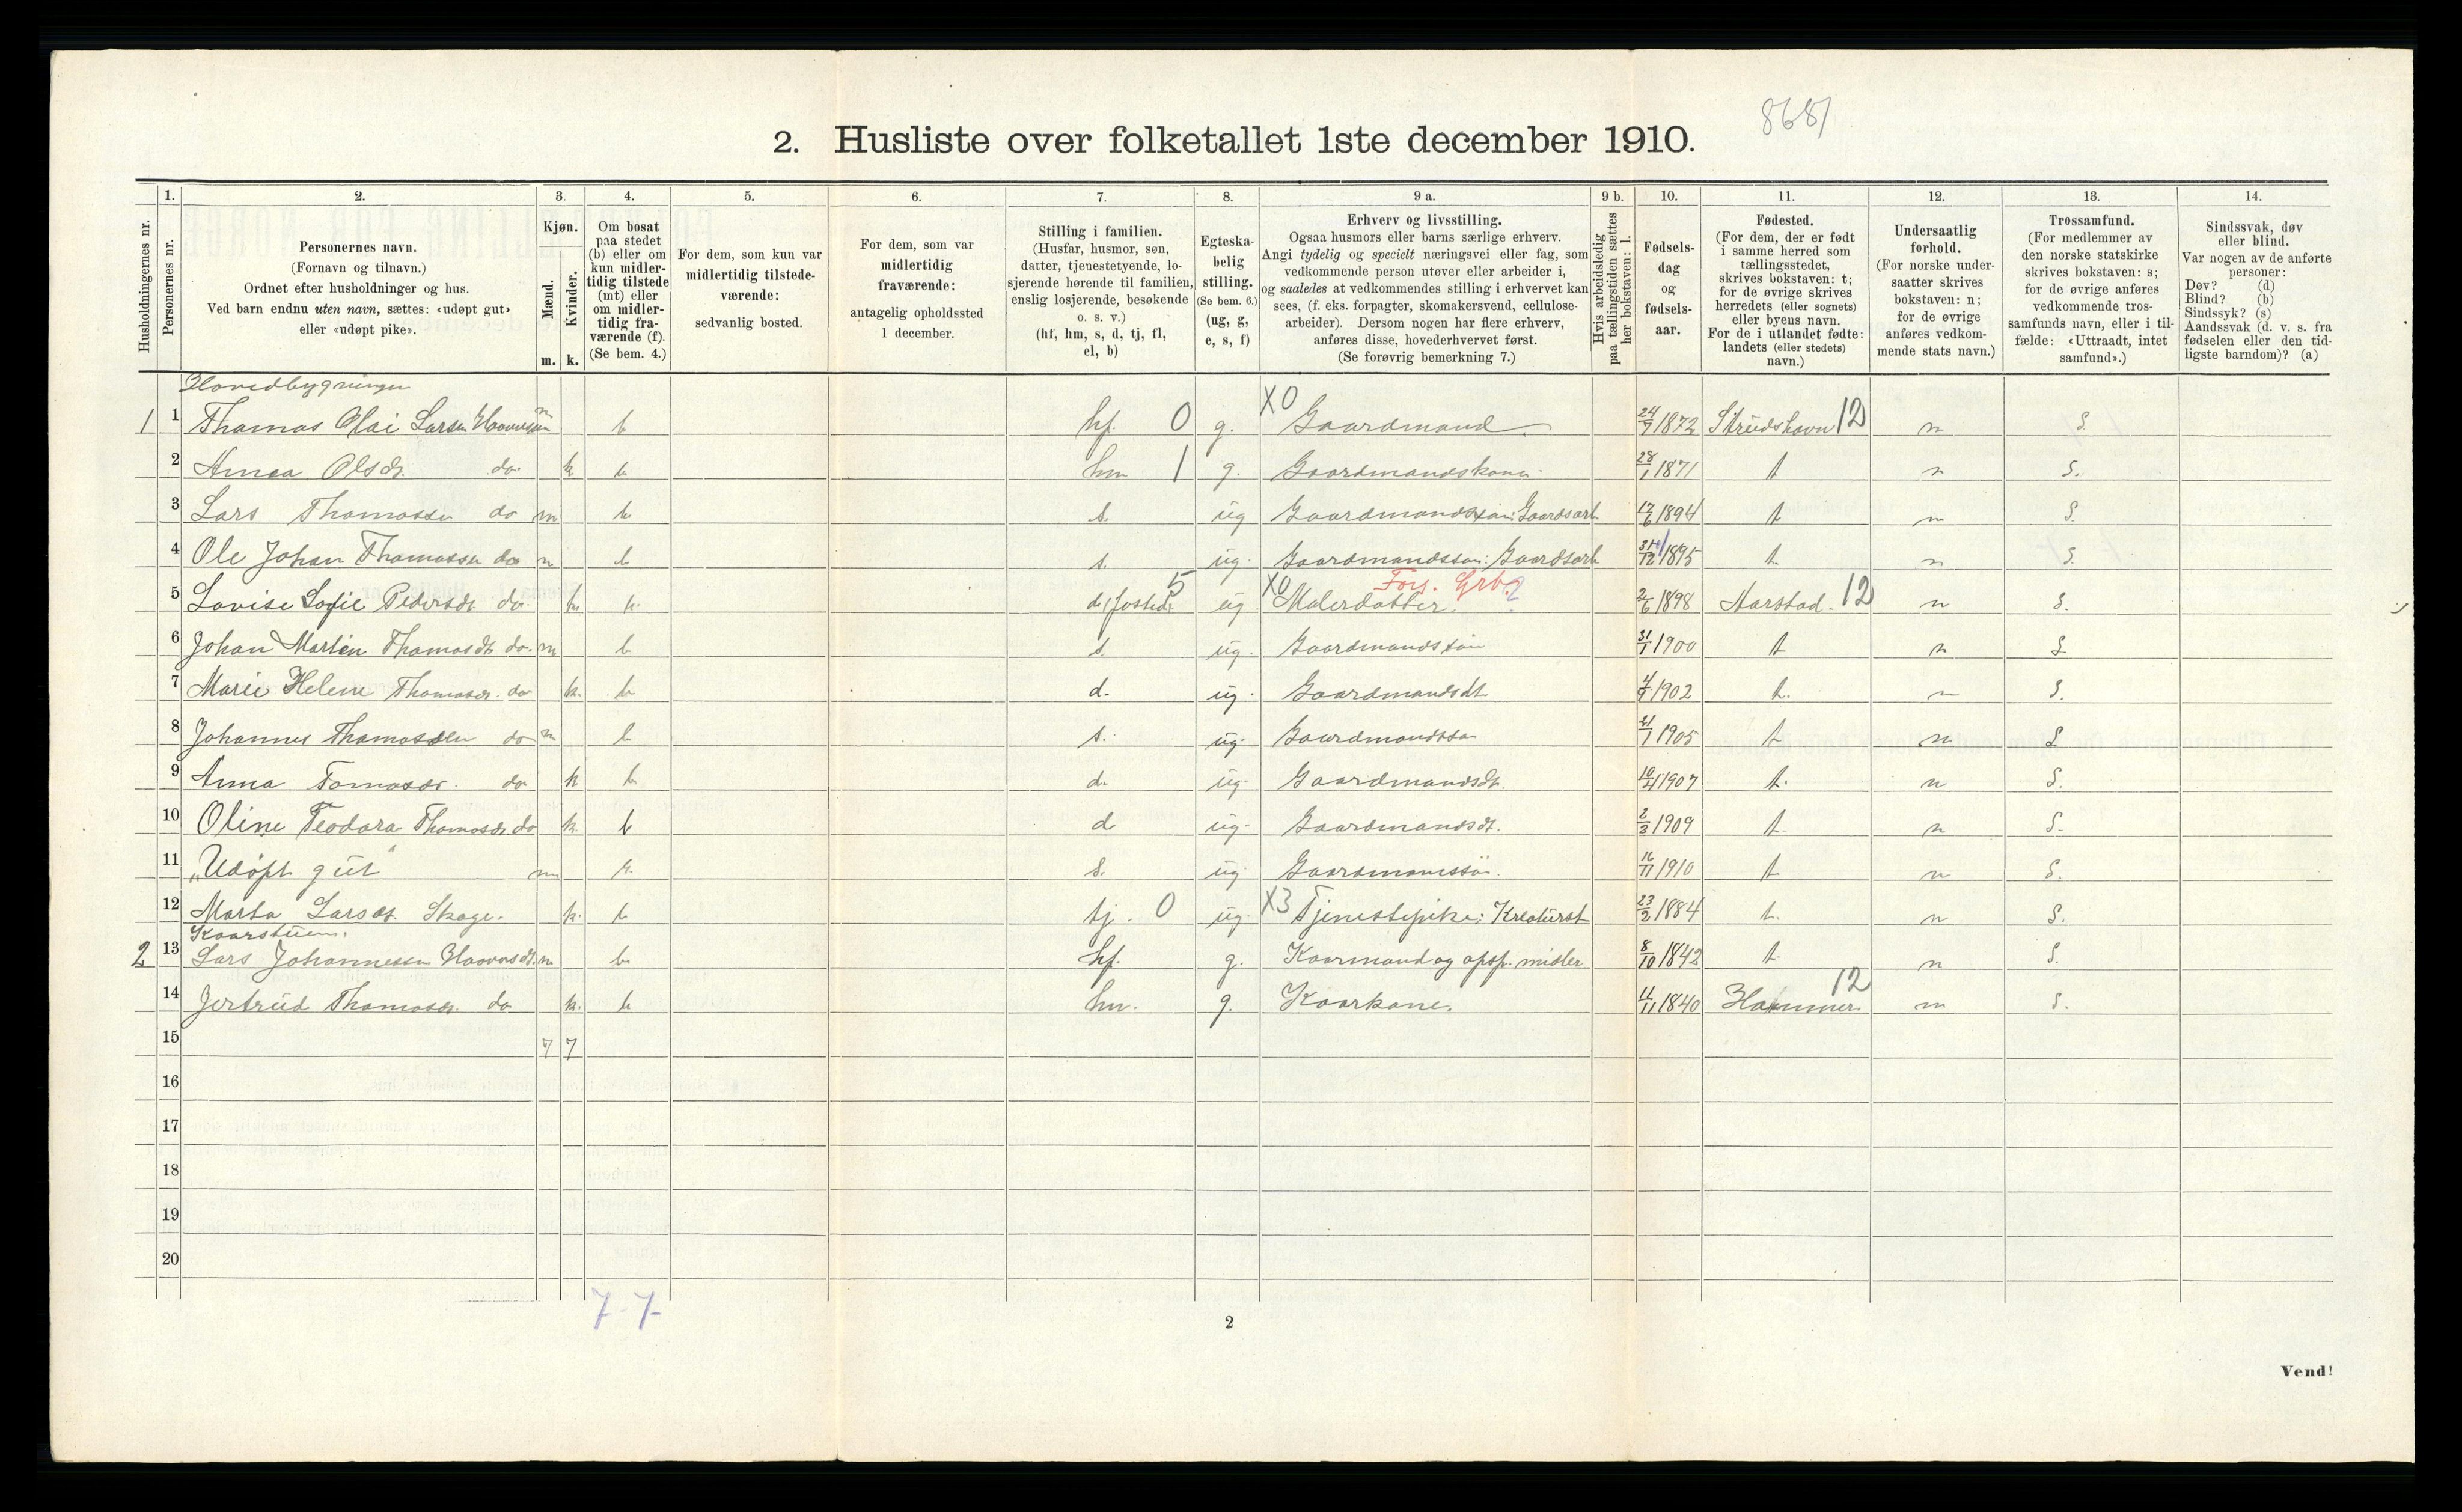 8681
2. Husliste over folketallet 1ste december 1910.
Husholdningernes nr.
1.
Personernes nr.
2.
Personernes navn.
(Fornavn og tilnavn.)
Ordnet efter husholdninger og hus.
Ved barn endnu uten navn, sættes: «udøpt gut»
eller «udøpt pike».
3.
Kjøn.
Mænd.
m.
Kvinder.
k.
4.
Om bosat
paa stedet
(b) eller om
kun midler-
tidig tilstede
(mt) eller
om midler-
tidig fra-
værende (f).
(Se bem. 4.)
5.
For dem, som kun var
midlertidig tilstede-
værende:
sedvanlig bosted.
6.
For dem, som var
midlertidig
fraværende:
antagelig opholdssted
1 december.
7.
Stilling i familien.
(Husfar, husmor, søn,
datter, tjenestetyende, lo-
sjerende hørende til familien,
enslig losjerende, besøkende
o. s. v.)
(hf, hm, s, d, tj, fl,
el, b)
8.
Egteska-
belig
stilling.
(Se bem. 6.)
(ug, g,
e, s, f)
9 a.
Erhverv og livsstilling.
Ogsaa husmors eller barns særlige erhverv.
Angi tydelig og specielt næringsvei eller fag, som
vedkommende person utøver eller arbeider i,
og saaledes at vedkommendes stilling i erhvervet kan
sees, (f. eks. forpagter, skomakersvend, cellulose-
arbeider). Dersom nogen har flere erhverv,
anføres disse, hovederhvervet først.
(Se forøvrig bemerkning 7.)
9 b.
Hvis arbeidsledig
paa tællingstiden sættes
her bokstaven: l.
10.
Fødsels-
dag
og
fødsels-
aar.
11.
Fødested.
(For dem, der er født
i samme herred som
tællingsstedet,
skrives bokstaven: t;
for de øvrige skrives
herredets (eller sognets)
eller byens navn.
For de i utlandet fødte:
landets (eller stedets)
navn.)
12.
Undersaatlig
forhold.
(For norske under-
saatter skrives
bokstaven: n;
for de øvrige
anføres vedkom-
mende stats navn.)
13.
Trossamfund.
(For medlemmer av
den norske statskirke
skrives bokstaven: s;
for de øvrige anføres
vedkommende tros-
samfunds navn, eller i til-
fælde: «Uttraadt, intet
samfund».)
14.
Sindssvak, døv
eller blind.
Var nogen av de anførte
personer:
Døv? (d)
Blind? (b)
Sindssyk? (s)
Aandssvak (d. v. s. fra
fødselen eller den tid-
ligste barndom)? (a)
Hovedbygningen
1 1 Thomas Olai Larsen m b hf. 0 g. X0 Gaardmand 24/7 1872 12 n S
2 Olsdt. do k b hm 1 g. Gaardmandskone 28/1 1871 t n S.
3 Lars Thomassen do m b s. ug Gaardmandssøn: Gaardsarb 17/6 1894 t n S.
4 Ole Johan Thomassen do m b s. ug. Gaardmandssøn: Gaardsarb 31/12 1895 t n S.
5 Lovise Sofie Pedersdt do k b d (fosterd) 5 ug X0 Malerdatter. Fors. Grbr ? 2/6 1898 Aarstad. 12 n S.
6 Johan Martin Thomasdt do. m b s. ug. Gaardmandssøn 31/1 1900 t n S
7 Marie Helene Thomasdt. do k. b d. ug. Gaardmandsdt 4/9 1902 t. n S.
8 Johannes Thomassen do m b s. ug. Gaardmandssøn 21/1 1905 t n S
9 Anna Tomasdt. do k b d. ug. Gaardmandsdt. 10/4 1907 t. n S.
10 Oline Teodora Thomasdt do k. b d ug. Gaardmandsdt. 2/3 1909 t n S.
11 „Udøpt gut" m b. s. ug. Gaardmandssøn. 16/11 1910 t n S.
12 Marta Larsdt. Skage. k. b tj. 0 ug. X3 Tjenestepike: Kreaturst 23/2 1884 t. n S.
Kaarstuen.
2 13 Lars Johannessen m b hf. g. Kaarmand og opsp. midler 8/10 1842 t n S.
14 Jertrud Thomasdt. do k. b hm. g. Kaarkone. 11/11 1840 Hammer. 12 n S.
15 7 7
16
17
18
19
20
7-7-
2
Vend!